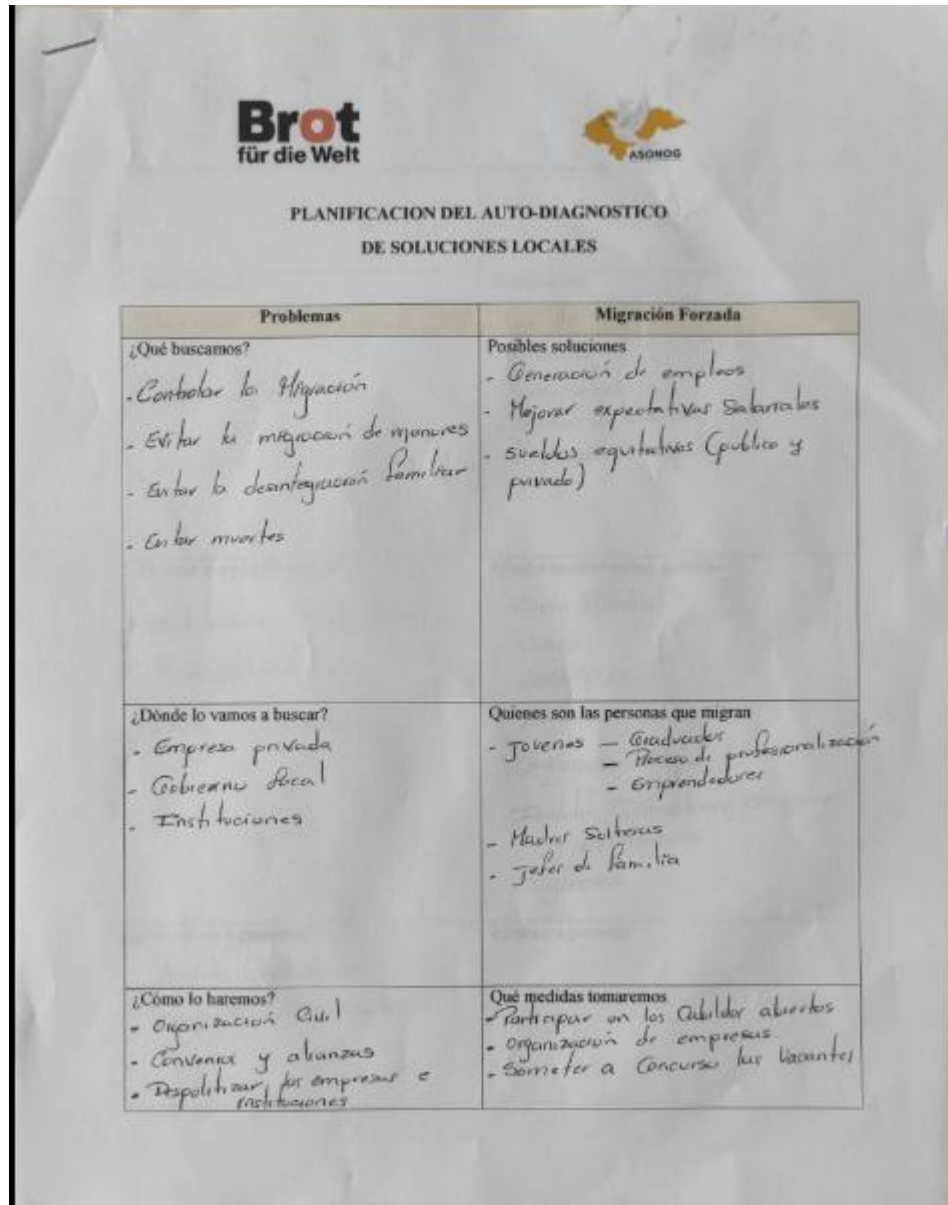 Brot
für die Welt
ASONOG
PLANIFICACION DEL AUTO-DIAGNOSTICO
DE SOLUCIONES LOCALES
Problemas
Migración Forzada
¿Qué buscamos?
- Controlar la Migración
- Evitar la migración de menores
- Evitar la desintegración familiar
- Evitar muertes
Posibles soluciones
- Generación de empleos
- Mejorar expectativas Salariales
- sueldos equitativos (publico y
privado)
¿Dónde lo vamos a buscar?
- Empresa privada
- Gobierno local
- Instituciones
Quienes son las personas que migran
- Jovenes — Graduados
— Proceso de profesionalización
- Emprendedores
- Madres Solteras
- Jefes de familia
¿Cómo lo haremos?
- Organización Civil
- Convenios y alianzas
- Despolitizar las empresas e
instituciones
Qué medidas tomaremos
- Participar en los Cabildos abiertos
- Organización de empresas.
- Someter a Concurso las Vacantes